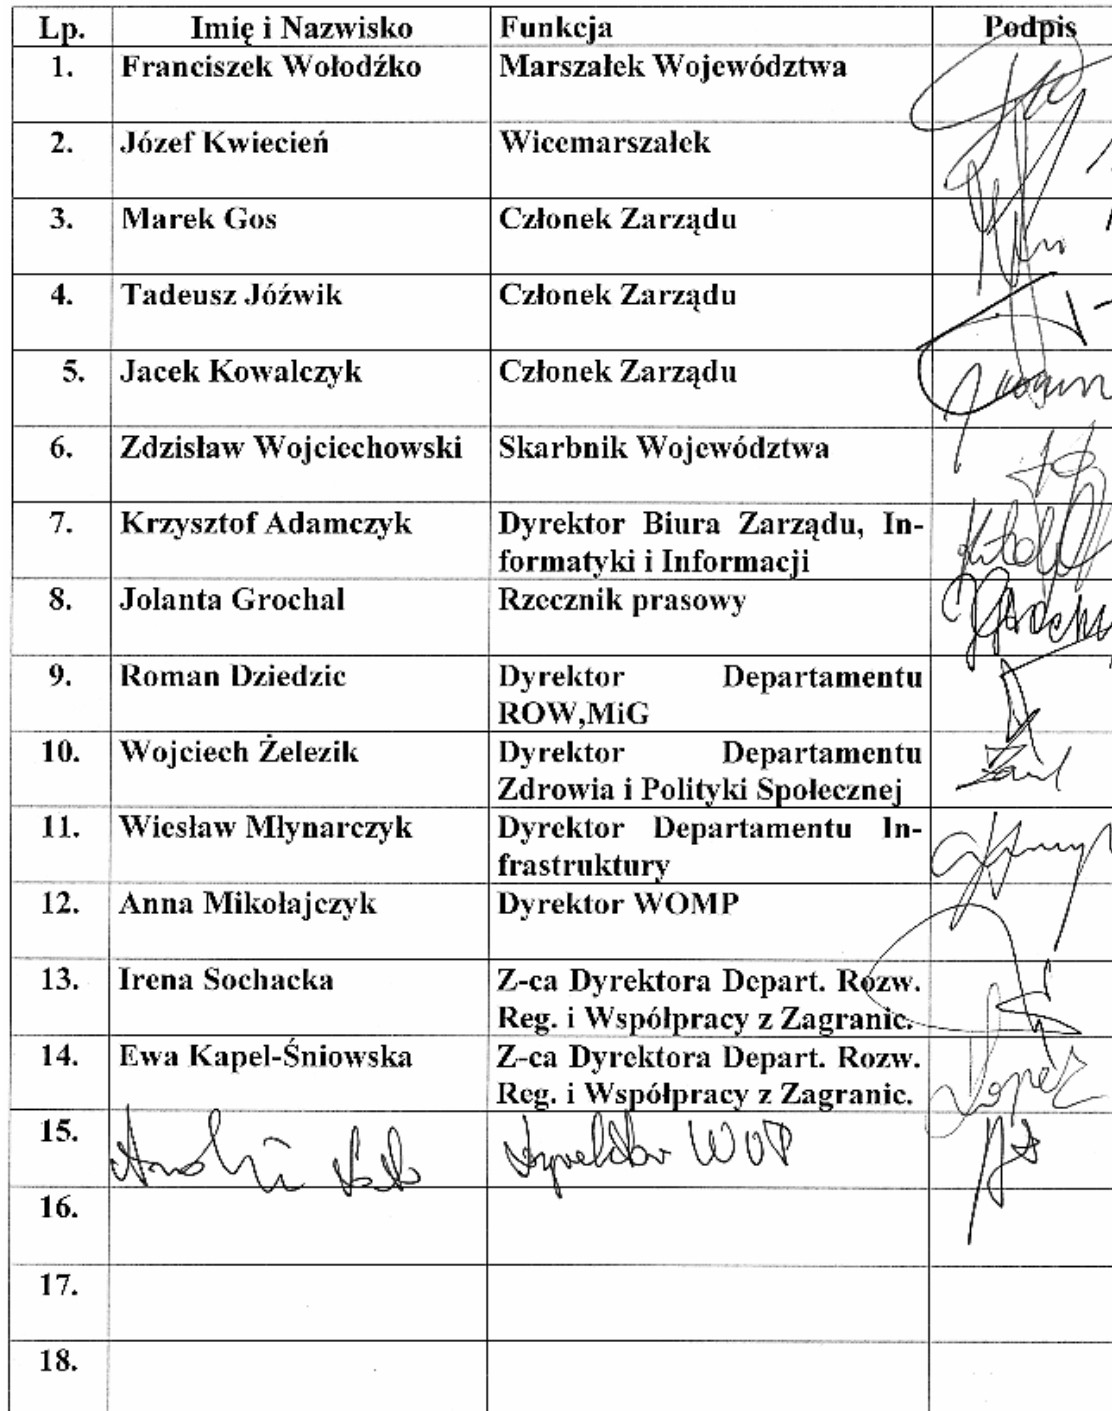 Lp. Imię i Nazwisko Funkcja Podpis
1. Franciszek Wołodźko Marszałek Województwa
2. Józef Kwiecień Wicemarszałek
3. Marek Gos Członek Zarządu
4. Tadeusz Jóźwik Członek Zarządu
5. Jacek Kowalczyk Członek Zarządu
6. Zdzisław Wojciechowski Skarbnik Województwa
7. Krzysztof Adamczyk Dyrektor Biura Zarządu, In-
formatyki i Informacji
8. Jolanta Grochal Rzecznik prasowy
9. Roman Dziedzic Dyrektor Departamentu
ROW,MiG
10. Wojciech Żelezik Dyrektor Departamentu
Zdrowia i Polityki Społecznej
11. Wiesław Młynarczyk Dyrektor Departamentu In-
frastruktury
12. Anna Mikołajczyk Dyrektor WOMP
13. Irena Sochacka Z-ca Dyrektora Depart. Rozw.
Reg. i Współpracy z Zagranic.
14. Ewa Kapel-Śniowska Z-ca Dyrektora Depart. Rozw.
Reg. i Współpracy z Zagranic.
15. Dyrektor WUP
16.
17.
18.